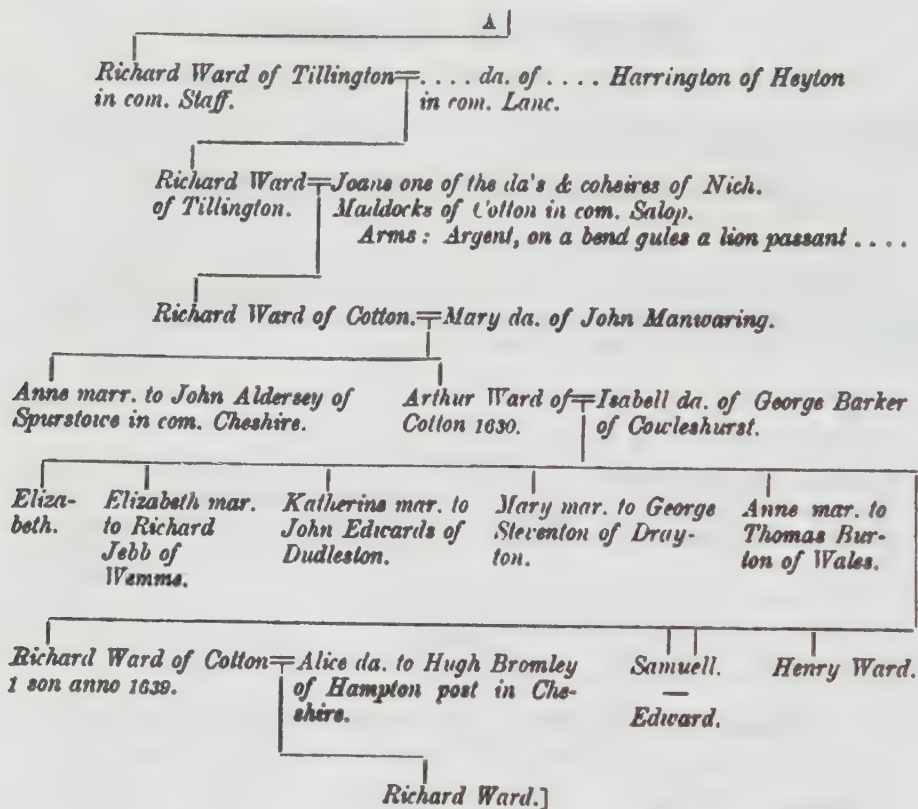 A
Richard Ward of Tillington = . . . . da. of . . . . Harrington of Heyton
in com. Staff. in com. Lanc.
Richard Ward = Joane one of the da's & coheires of Nich.
of Tillington. Maddocks of Cotton in com. Salop.
Arms : Argent, on a bend gules a lion passant . . . .
Richard Ward of Cotton. = Mary da. of John Manwaring.
Anne marr. to John Aldersey of
Spurstowe in com. Cheshire.
Arthur Ward of = Isabell da. of George Barker
Cotton 1630. of Cowleshurst.
Eliza-
beth.
Elizabeth mar.
to Richard
Jebb of
Wemme.
Katherine mar. to
John Edwards of
Dudleston.
Mary mar. to George
Steventon of Dray-
ton.
Anne mar. to
Thomas Bur-
ton of Wales.
Richard Ward of Cotton = Alice da. to Hugh Bromley
1 son anno 1639. of Hampton post in Che-
shire.
Samuell.
—
Edward.
Henry Ward.
Richard Ward.]